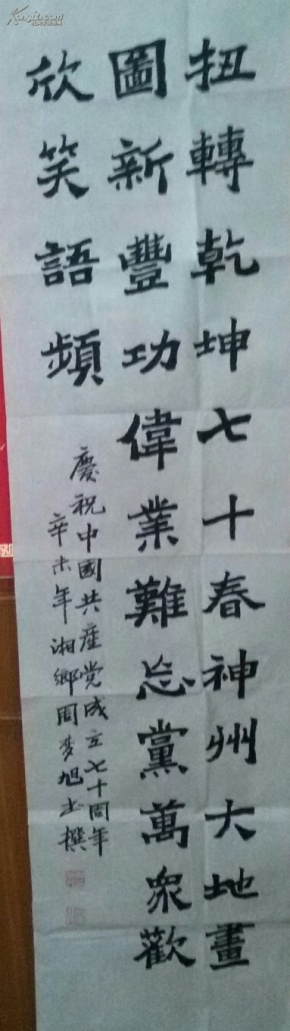 扭轉乾坤七十春神州大地畫
圖新豐功偉業難忘黨萬衆歡
欣笑語頻
慶祝中國共產党成立七十周年
辛未年湘鄉周夢旭書撰